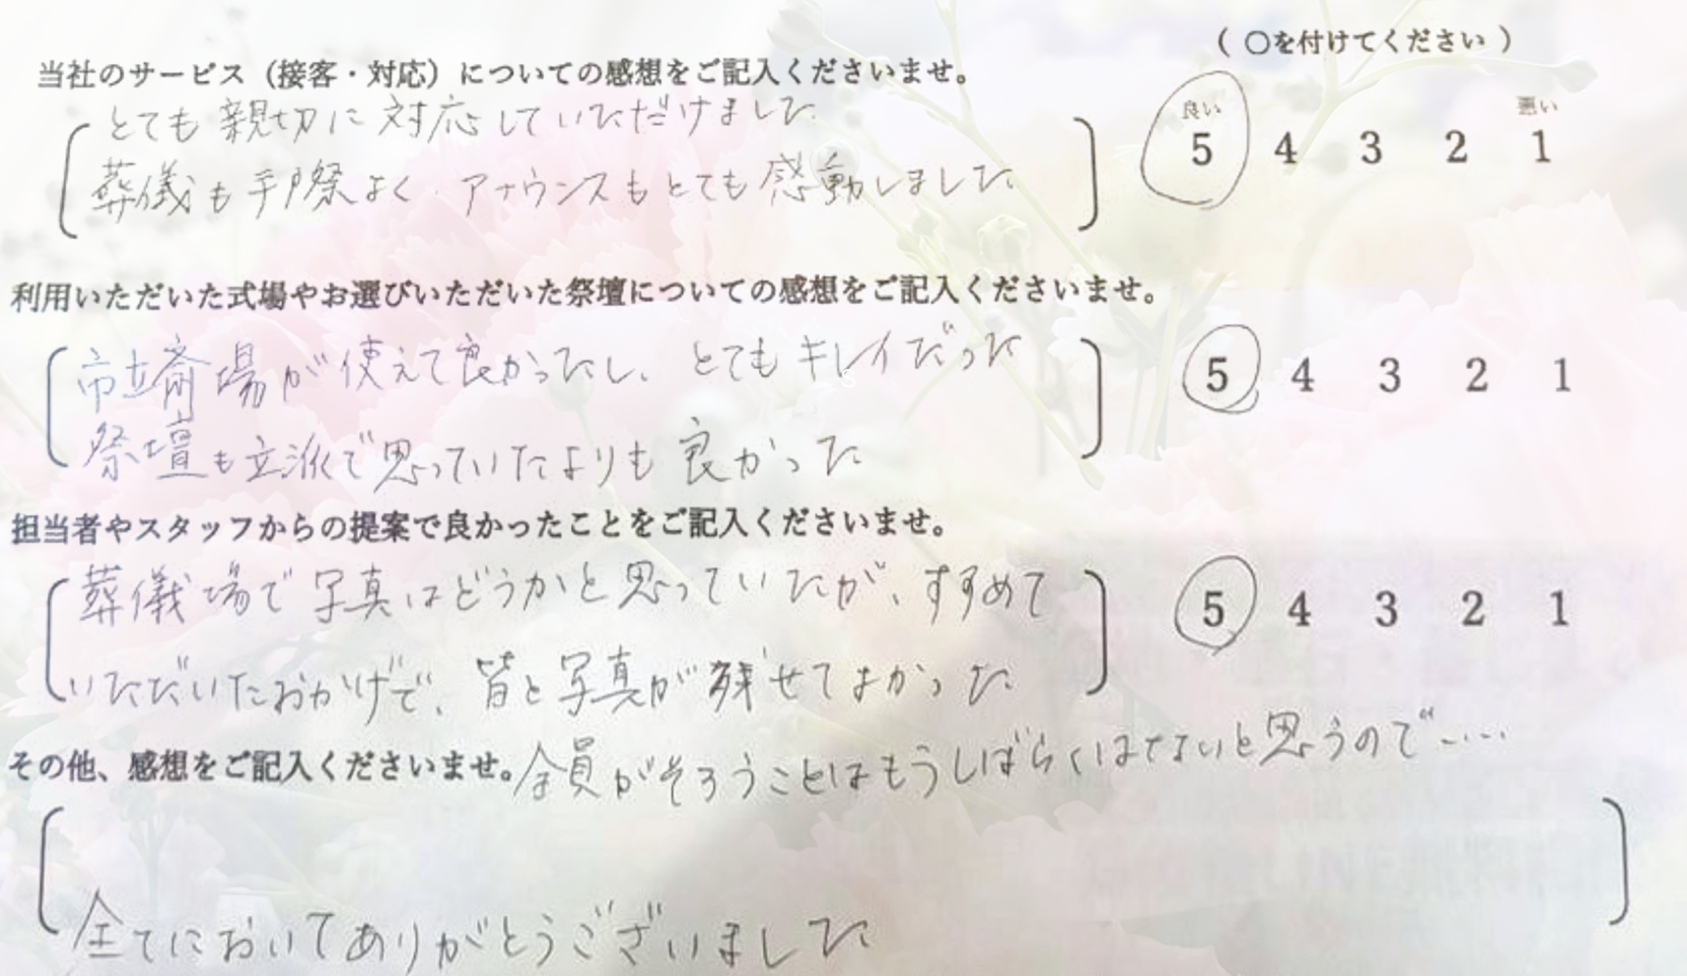 (〇を付けてください)
当社のサービス（接客・対応）についての感想をご記入くださいませ。
良い 悪い
5 4 3 2 1
とても親切に対応していただけました
葬儀も手際よく アナウンスもとても感動しました。
利用いただいた式場やお選びいただいた祭壇についての感想をご記入くださいませ。
市立斎場が使えて良かったし、とてもキレイだった
5 4 3 2 1
祭壇も立派で思っていたよりも良かった
担当者やスタッフからの提案で良かったことをご記入くださいませ。
葬儀場で写真はどうかと思っていたが、すすめて
5 4 3 2 1
いただいたおかげで、皆と写真が残せてよかった
全員がそろうことはもうしばらくはないと思うので……
その他、感想をご記入くださいませ。
全てにおいてありがとうございました